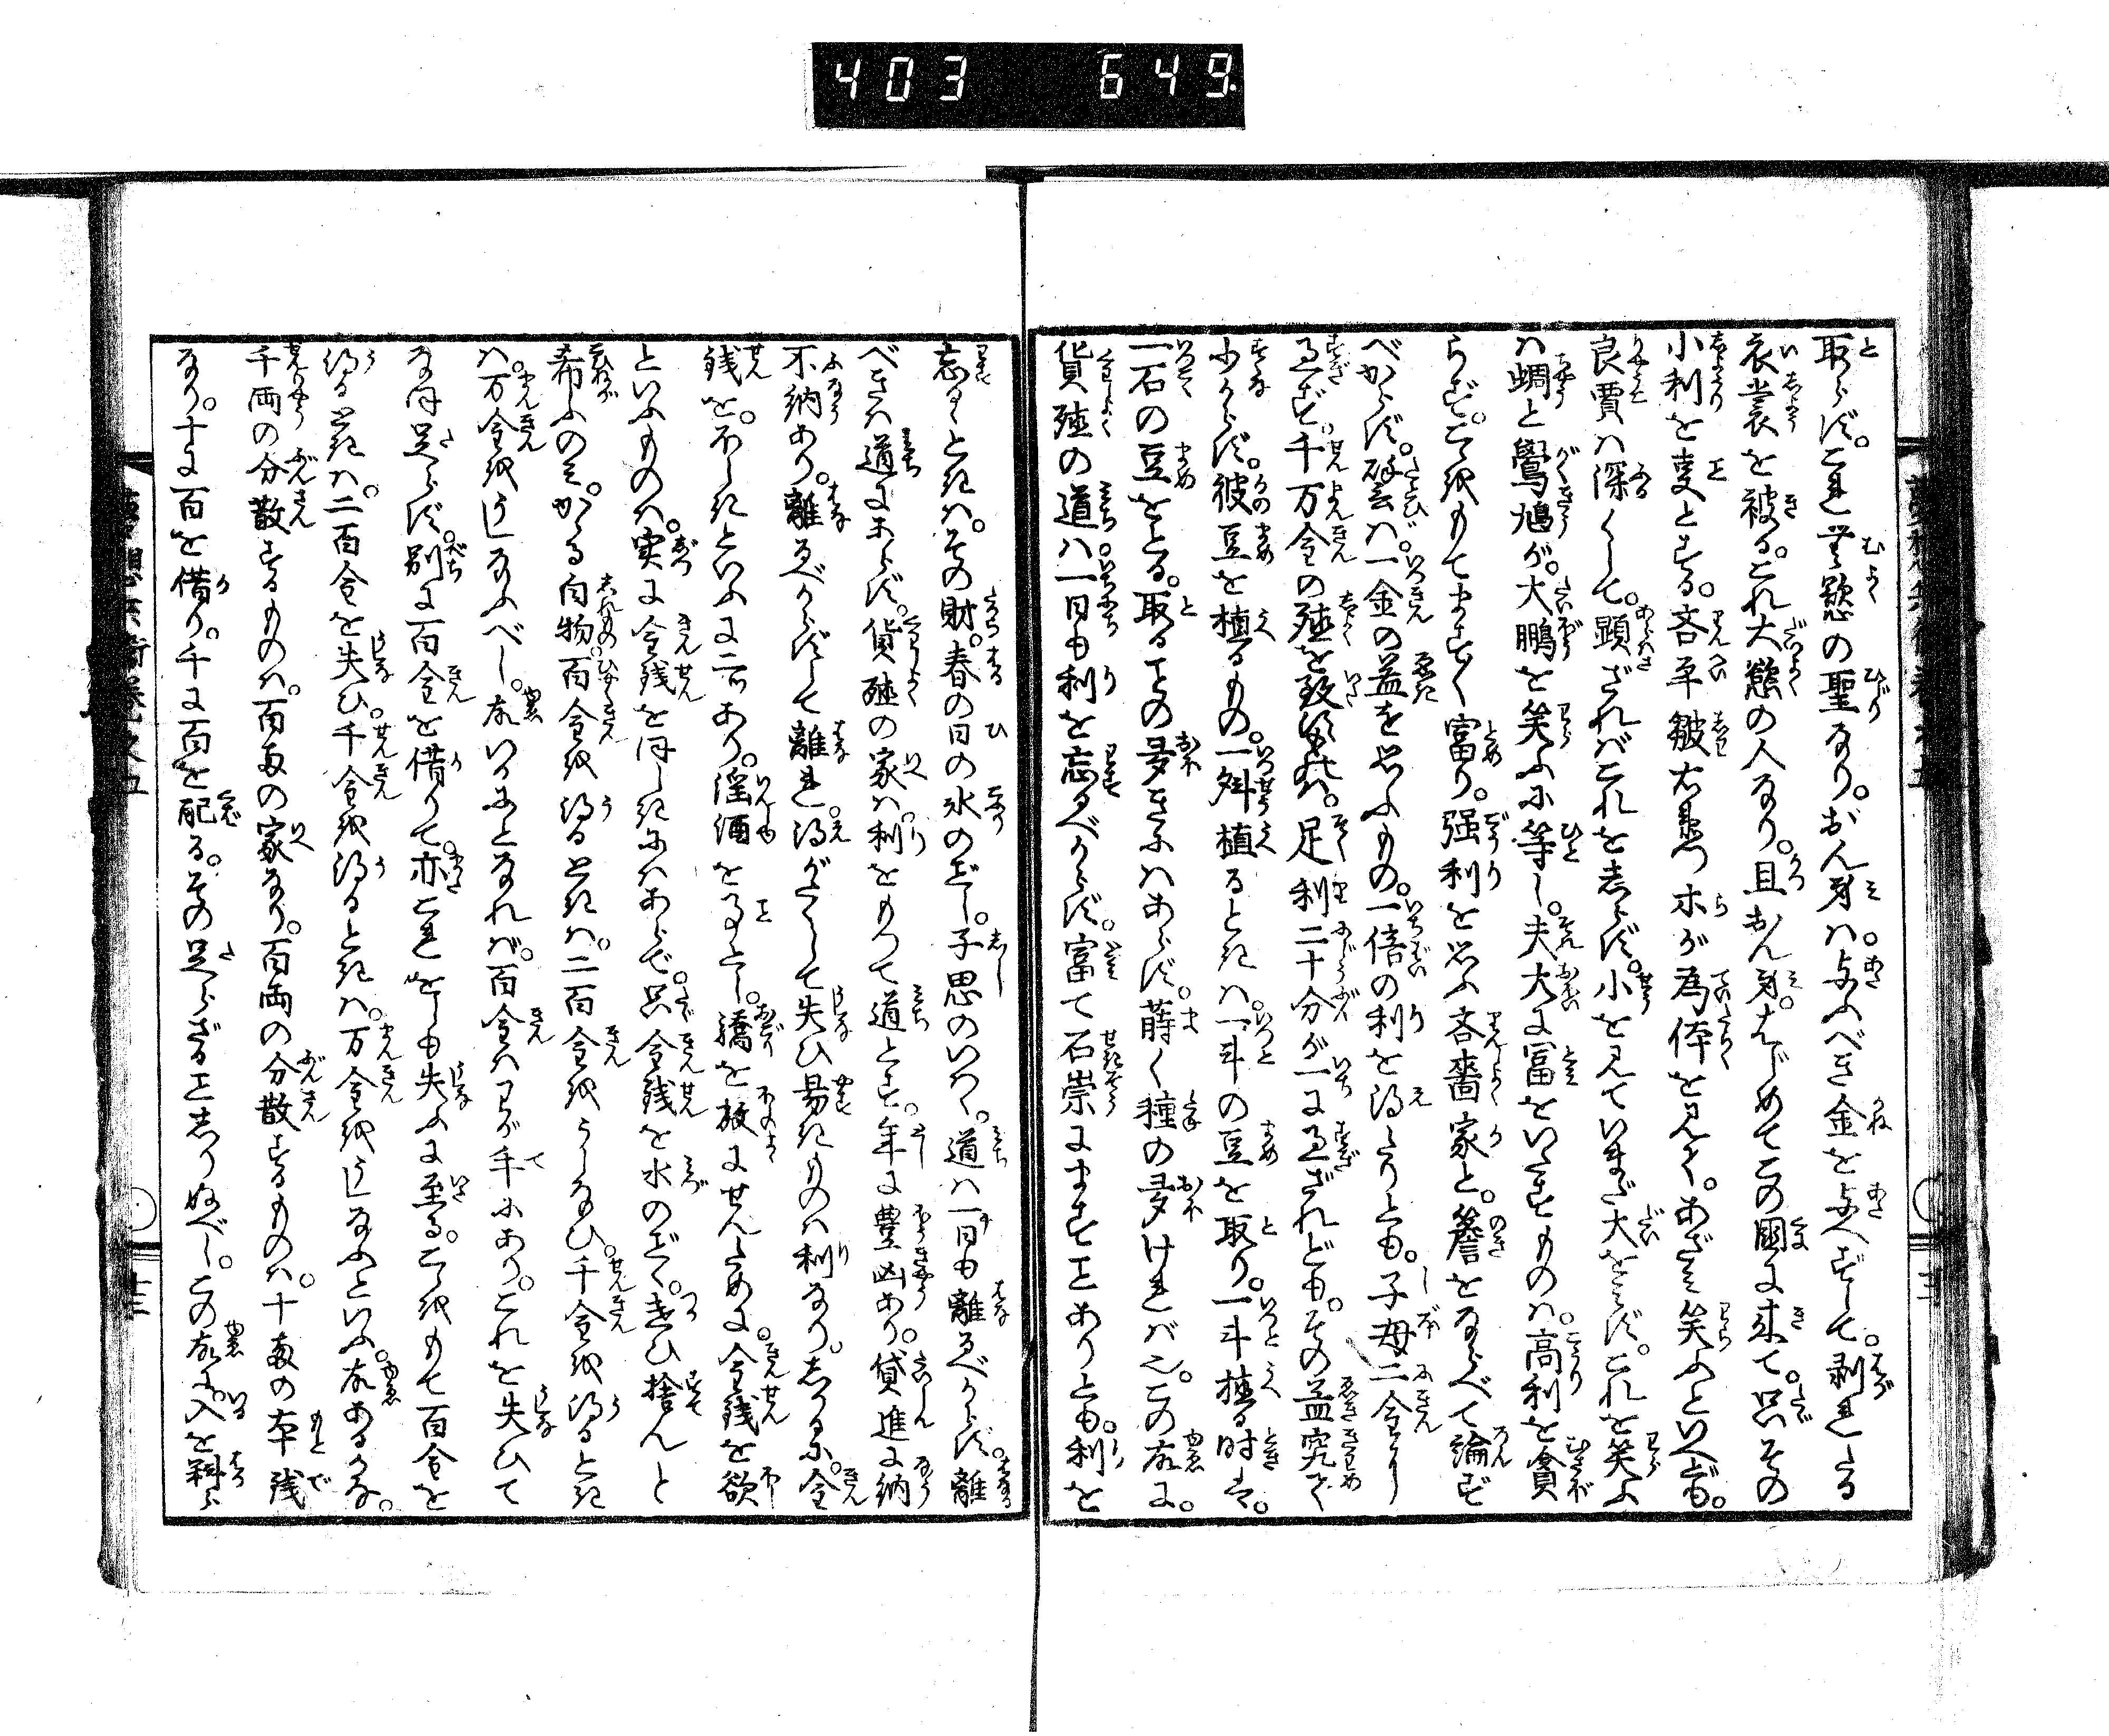 403 649
取らず。これ無慾の聖なり。おん身は。与ふべき金を与へずして。剥れたる
衣裳を被る。これ大慾の人なり。且おん身。はじめてこの國に来て。只その
小利を事とする。吝平皺右衛門ホが為体を見て。あざみ笑ふといへども。
良賈は深くして。顕ざればこれを志らず。小を見ていまだ大をみず。これを笑ふ
は蜩と鷽鳩が。大鵬を笑ふに等し。夫大に富をいたすものは。高利を貪
らず。こゝをもてますます富り。强利を思ふ吝嗇家と。簷をならべて論ず
べからず。譬ば。一金の益を思ふもの。一倍の利を得たりとも。子母二金に
過ず。千万金の殖を致すものは。足利二十分が一に過ざれども。その益究て
少からず。彼豆を植るもの。一舛植るときは。一斗の豆を取り。一斗植る時は。
一石の豆をとる。取るその多きにはあらず。蒔く種の多ければ也。この故に。
貨殖の道は一日も利を忘るべからず。富て石崇にますことありとも。利を
忘るゝときは。その財。春の日の氷のごとし。子思のいはく。道は一日も離るべからず。離
べきは道にあらず。貨殖の家は。利をもつて道とす。年に豊凶あり。貸進に納
不納あり。離るべからずして離れ。得がたくして失ひ易きものは利なり。しかるに。金
銭を。ほしきといふに二つあり。淫酒を事とし。驕を放にせんために。金銭を欲
といふものは。実に金銭をほしきにはあらで。只金銭を水のごとく。きひ捨んと
希ふのみ。かゝる白物。百金を得るときは。二百金をうしなひ。千金を得るとき
は。万金をうしなふべし。故いかにとなれば。百金はわが手にあり。これを失ひて
なほ足らず。別に百金を借りて。亦これをしも失ふに至る。こゝをもて百金を
得るときは。二百金を失ひ。千金を得るときは。万金をうしなふといふ。故あるかな。
千両の分散するものは。百両の家なり。百両の分散するものは。十両の本銭
なり。十に百を借り。千に百を配る。その足らざることしりぬべし。この故に。入を料ら